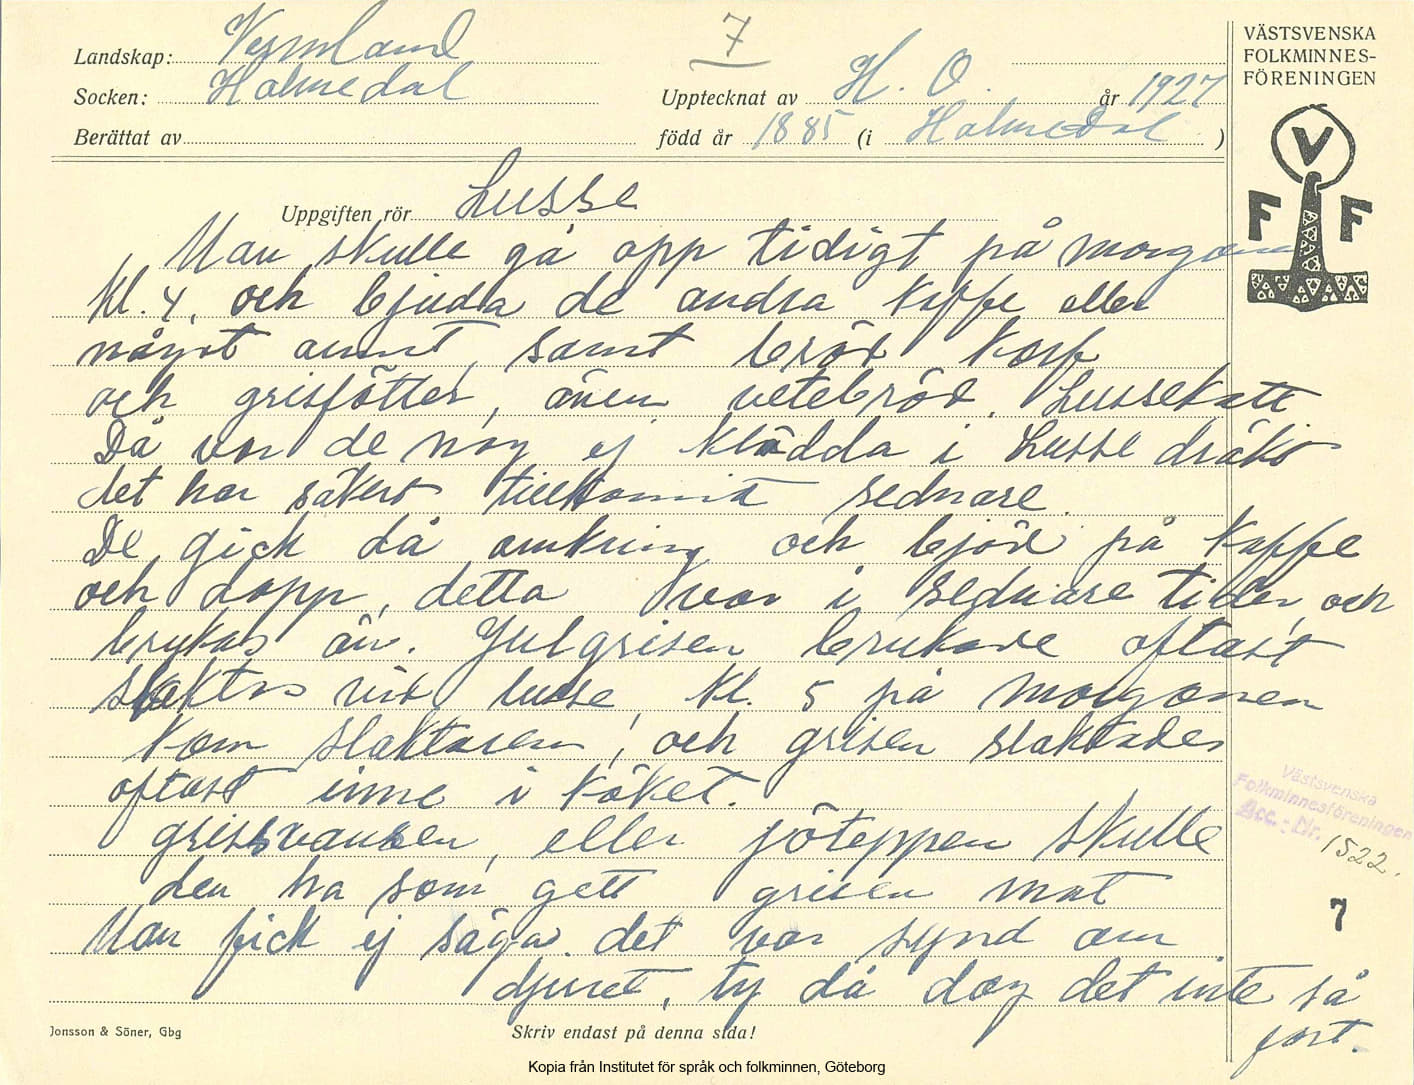 7
Landskap: Vermland
Socken: Holmedal
Upptecknat av H. O. år 1927
Berättat av
född år 1885 (i Holmedal )
VÄSTSVENSKA
FOLKMINNES-
FÖRENINGEN
V
F F
Uppgiften rör Lusse
Man skulle gå opp tidigt på morgonen
Kl. 4, och bjuda de andra kaffe eller
något annat, samt bröd korf
och grisfötter, även vetebröd, Lussekatt
Då var de nog ej klädda i Lusse dräkt
det har säkert tillkommit sednare.
De gick då omkring och bjöd på kaffe
och dopp, detta var i sednare tider, och
brukas än. Julgrisen brukade oftast
slaktas vid lusse, kl. 5 på morgonen
kom slaktaren, och grisen slaktades
oftast inne i köket.
grissvansen, eller jöteppen skulle
den ha som gett grisen mat
Man fick ej säga det var synd om
djuret, ty då dog det inte så
fort.
Västsvenska
Folkminnesföreningen
Acc.-Nr. 1522.
7
Jonsson & Söner, Gbg
Skriv endast på denna sida!
Kopia från Institutet för språk och folkminnen, Göteborg